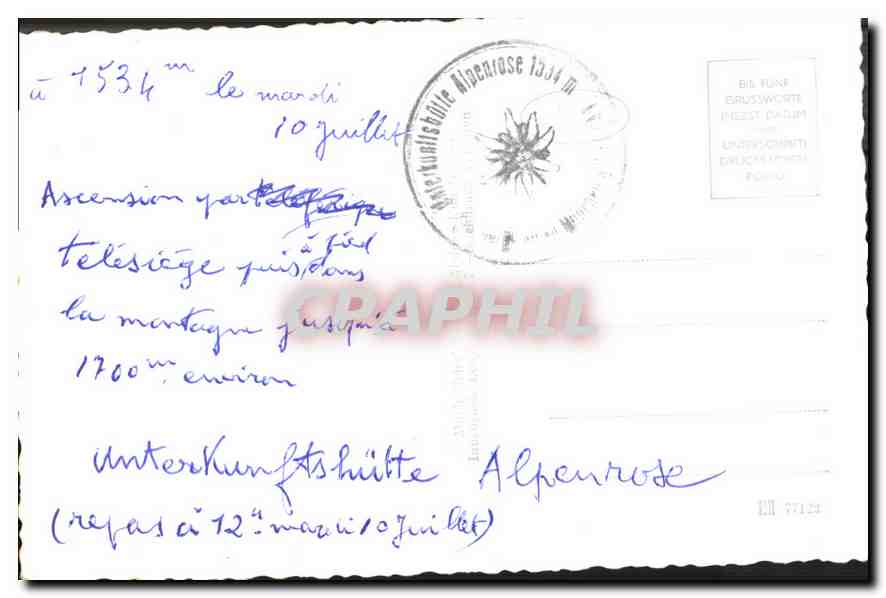 à 1534 m le mardi
10 Juillet
Ascension par
à pied
télésiège puis, dans
la montagne jusqu'à
1700 m. environ
Unterkunftshütte Alpenrose
(repas à 12 h. mardi 10 Juillet)
Unterkunftshütte Alpenrose 1534 m
BIS FÜNF
GRUSSWORTE
NEBST DATUM
UNTERSCHRIFT
DRUCKSACHEN
PORTO
CPAPHIL
77129